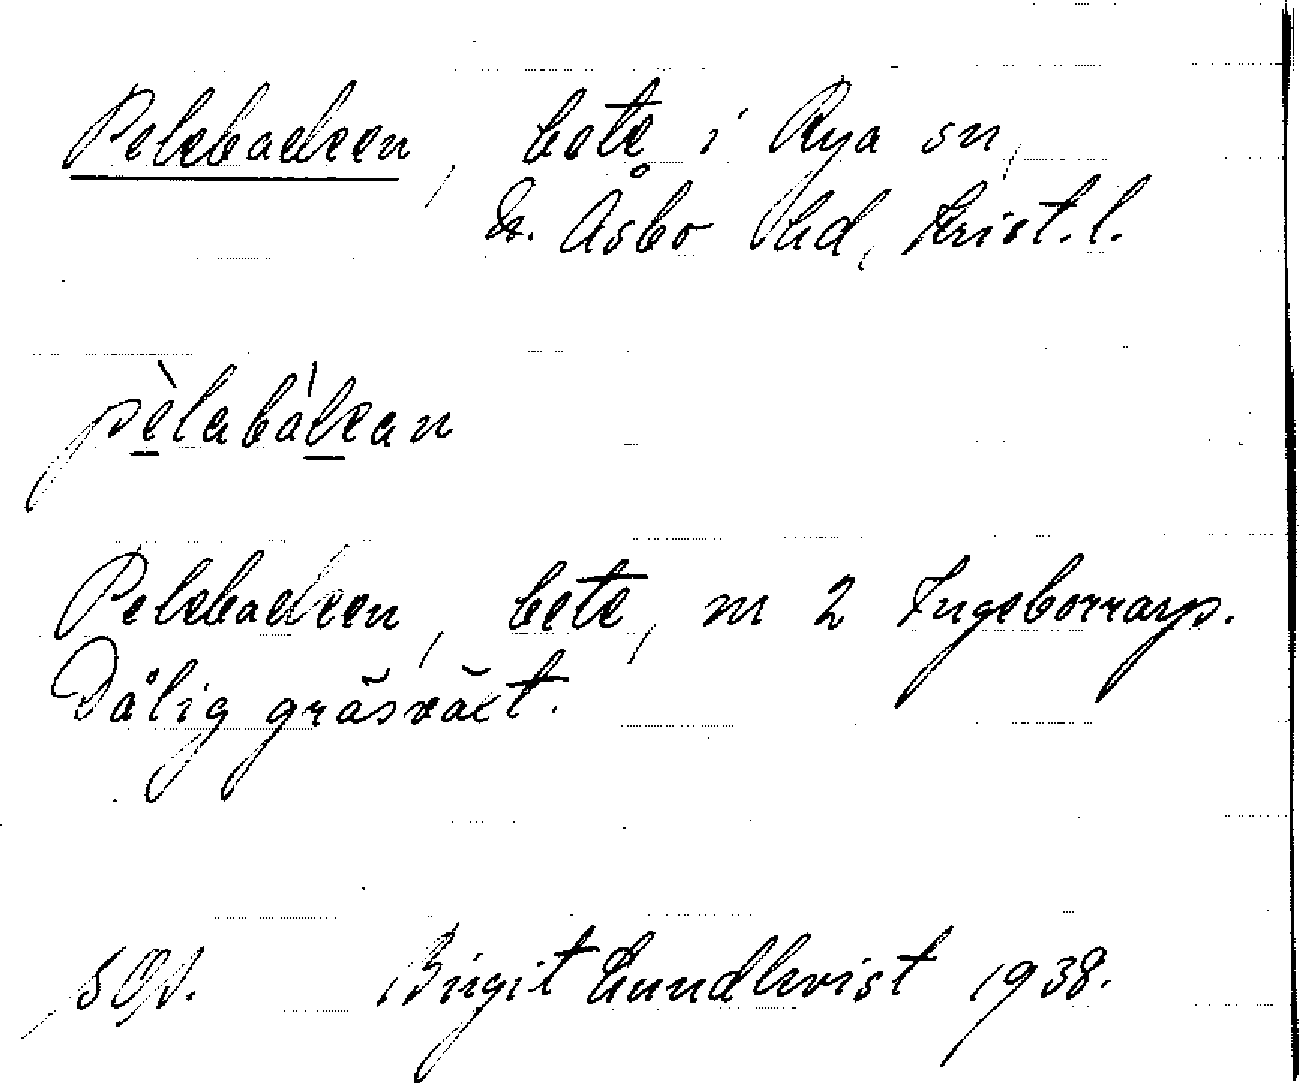 Pelebacken, bete i Rya sn,
N. Åsbo hd, Krist.l.
pèlabákan
Pelebacken, bete, nr 2 Ingeborrarp.
Dålig gräsväxt.
Birgit Lundkvist 1938.